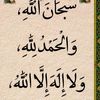 سُبْحَانَ اللَّهِ،
وَالْحَمْدُ لِلَّهِ،
وَلَا إِلَهَ إِلَّا اللَّهُ،